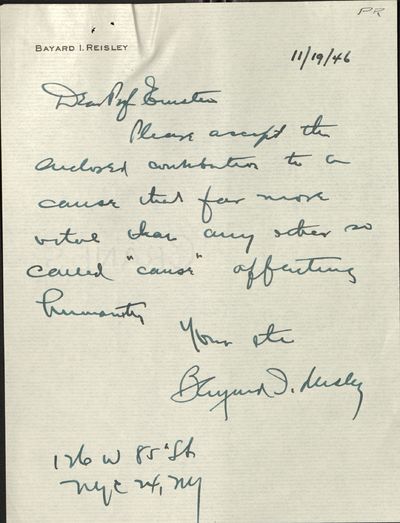 PR
BAYARD I. REISLEY
11/19/46
Dear Prof Einstein
Please accept the
enclosed contribution to a
cause that far more
vital than any other so
called "cause" affecting
humanity
Yours etc
Bayard I. Reisley
126 W 85th St
NYC 24, NY